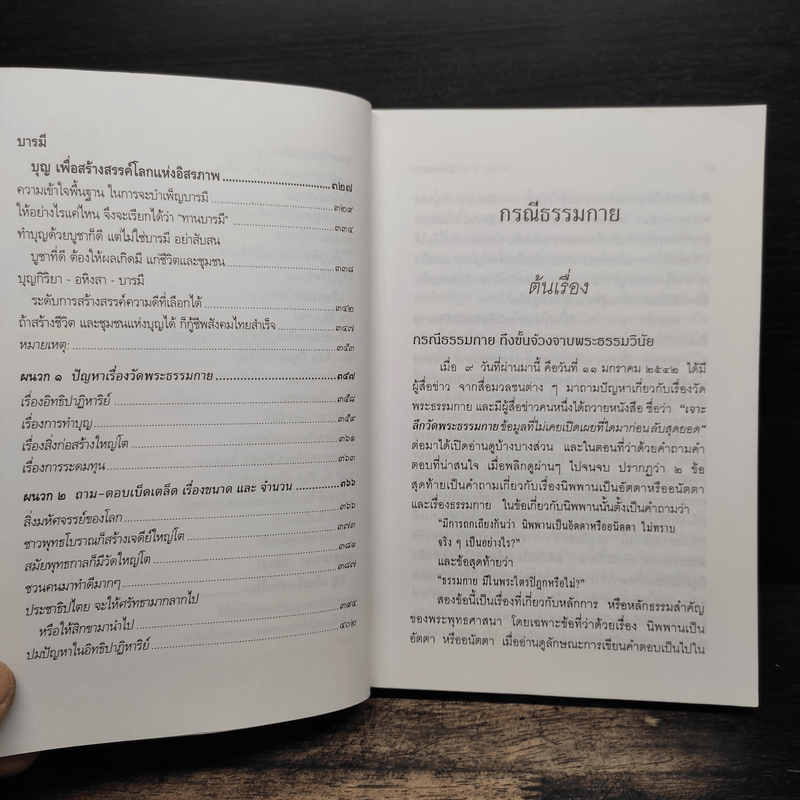 บารมี
บุญ เพื่อสร้างสรรค์โลกแห่งอิสรภาพ ๓๒๗
ความเข้าใจพื้นฐาน ในการจะบำเพ็ญบารมี ๓๒๙
ให้อย่างไรแค่ไหน จึงจะเรียกได้ว่า "ทานบารมี" ๓๓๔
ทำบุญด้วยบูชาก็ดี แต่ไม่ใช่บารมี อย่าสับสน
บูชาที่ดี ต้องให้ผลเกิดมี แก่ชีวิตและชุมชน ๓๓๘
บุญกิริยา - อหิงสา - บารมี
ระดับการสร้างสรรค์ความดีที่เลือกได้ ๓๔๒
ถ้าสร้างชีวิต และชุมชนแห่งบุญได้ ก็กู้ชีพสังคมไทยสำเร็จ ๓๔๗
หมายเหตุ: ๓๕๓
ผนวก ๑ ปัญหาเรื่องวัดพระธรรมกาย ๓๔๗
เรื่องอิทธิปาฏิหาริย์ ๓๕๘
เรื่องการทำบุญ ๓๕๙
เรื่องสิ่งก่อสร้างใหญ่โต ๓๖๑
เรื่องการระดมทุน ๓๖๓
ผนวก ๒ ถาม-ตอบเบ็ดเตล็ด เรื่องขนาด และ จำนวน ๓๖๖
สิ่งมหัศจรรย์ของโลก ๓๖๖
ชาวพุทธโบราณก็สร้างเจดีย์ใหญ่โต ๓๗๓
สมัยพุทธกาลก็มีวัดใหญ่โต ๓๘๑
ชวนคนมาทำดีมากๆ ๓๘๗
ประชาธิปไตย จะให้ศรัทธามากลากไป
หรือให้สิกขามานำไป ๓๙๔
ปมปัญหาในอิทธิปาฏิหาริย์ ๔๐๒
กรณีธรรมกาย
ต้นเรื่อง
กรณีธรรมกาย ถึงขั้นจ้วงจาบพระธรรมวินัย
เมื่อ ๙ วันที่ผ่านมานี้ คือวันที่ ๑๑ มกราคม ๒๕๔๒ ได้มี
ผู้สื่อข่าว จากสื่อมวลชนต่าง ๆ มาถามปัญหาเกี่ยวกับเรื่องวัด
พระธรรมกาย และมีผู้สื่อข่าวคนหนึ่งได้ถวายหนังสือ ชื่อว่า "เจาะ
ลึกวัดพระธรรมกาย ข้อมูลที่ไม่เคยเปิดเผยที่ใดมาก่อน ลับสุดยอด"
ต่อมาได้เปิดอ่านดูบ้างบางส่วน และในตอนที่ว่าด้วยคำถามคำ
ตอบที่น่าสนใจ เมื่อพลิกดูผ่านๆ ไปจนจบ ปรากฏว่า ๒ ข้อ
สุดท้ายเป็นคำถามเกี่ยวกับเรื่องนิพพานเป็นอัตตาหรืออนัตตา
และเรื่องธรรมกาย ในข้อเกี่ยวกับนิพพานนั้นตั้งเป็นคำถามว่า
"มีการถกเถียงกันว่า นิพพานเป็นอัตตาหรืออนัตตา ไม่ทราบ
จริง ๆ เป็นอย่างไร?"
และข้อสุดท้ายว่า
"ธรรมกาย มีในพระไตรปิฎกหรือไม่?"
สองข้อนี้เป็นเรื่องที่เกี่ยวกับหลักการ หรือหลักธรรมสำคัญ
ของพระพุทธศาสนา โดยเฉพาะข้อที่ว่าด้วยเรื่อง นิพพานเป็น
อัตตา หรืออนัตตา เมื่ออ่านดูลักษณะการเขียนคำตอบเป็นไปใน